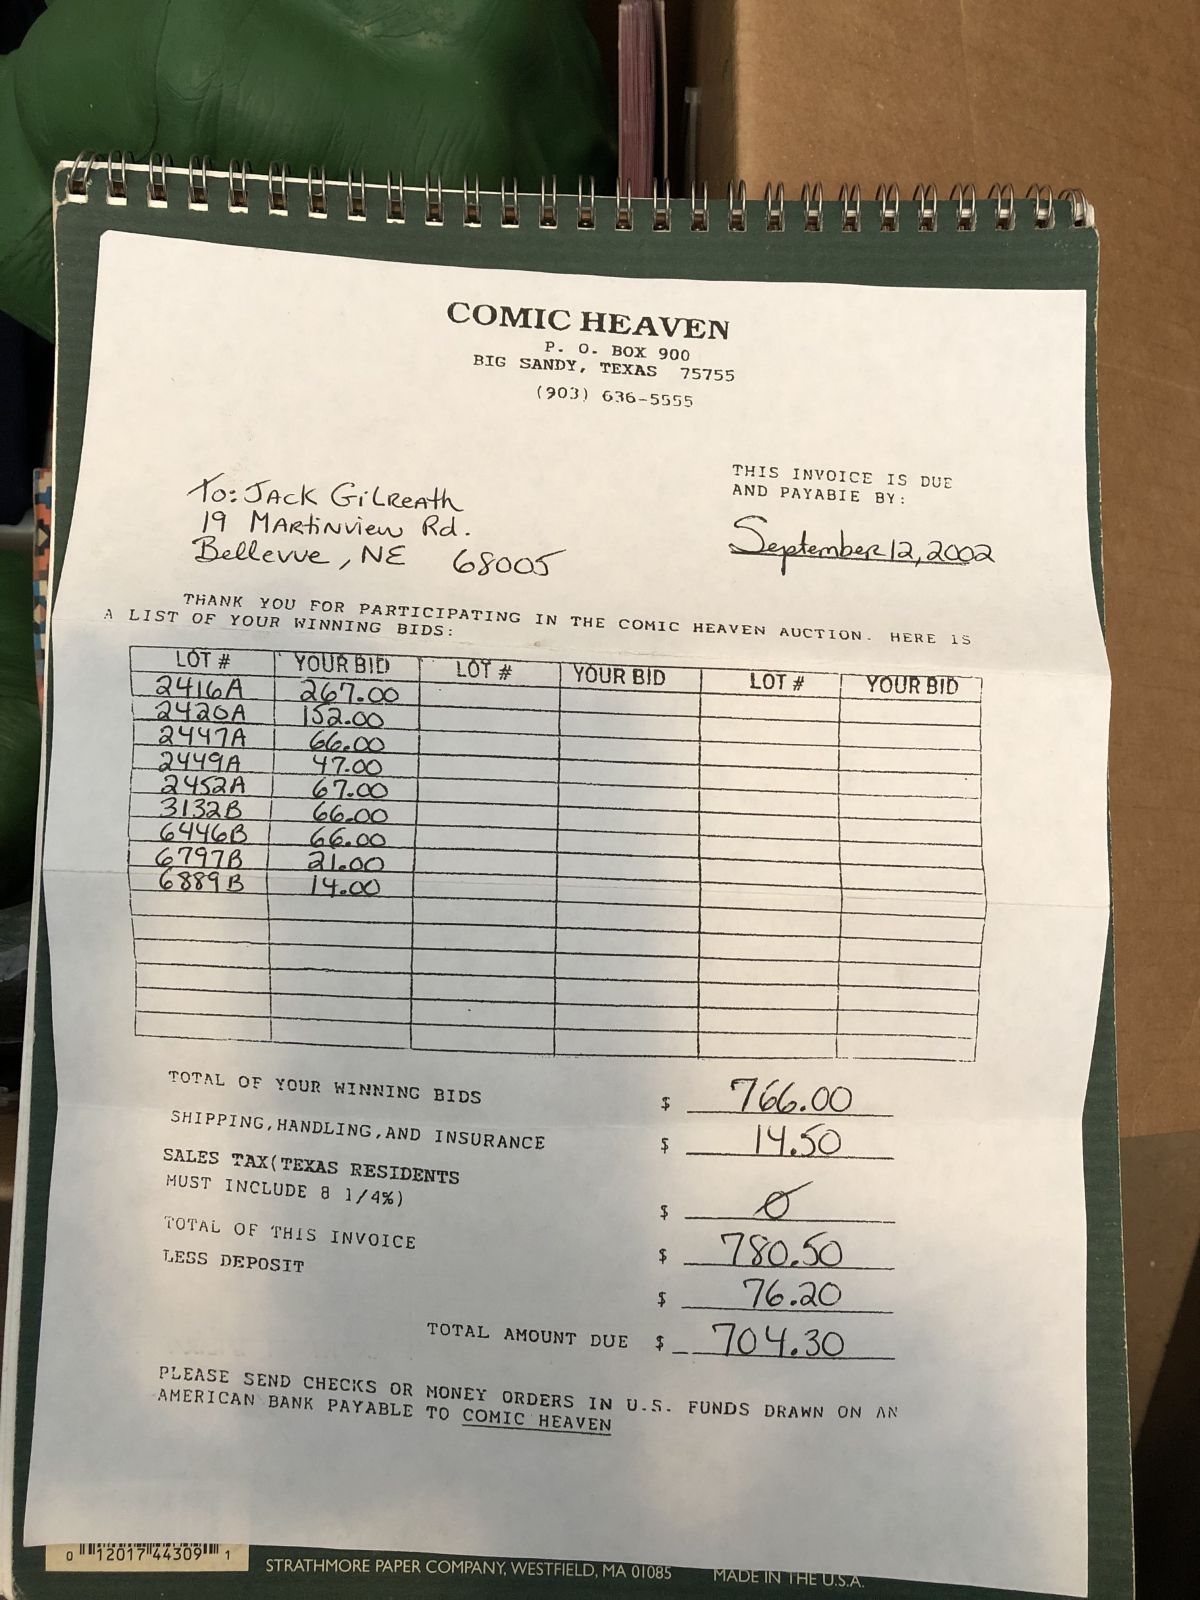 COMIC HEAVEN
P. O. BOX 900
BIG SANDY, TEXAS 75755
(903) 636-5555
THIS INVOICE IS DUE
AND PAYABLE BY:
September 12, 2002
To: Jack Gilreath
19 Martinview Rd.
Bellevue, NE 68005
THANK YOU FOR PARTICIPATING IN THE COMIC HEAVEN AUCTION. HERE IS
A LIST OF YOUR WINNING BIDS:
LOT # YOUR BID LOT # YOUR BID LOT # YOUR BID
2416A 267.00
2420A 152.00
2447A 66.00
2449A 47.00
2452A 67.00
3132B 66.00
6446B 66.00
6797B 21.00
6889B 14.00
TOTAL OF YOUR WINNING BIDS $ 766.00
SHIPPING, HANDLING, AND INSURANCE $ 14.50
SALES TAX (TEXAS RESIDENTS
MUST INCLUDE 8 1/4%) $ Ø
TOTAL OF THIS INVOICE $ 780.50
LESS DEPOSIT $ 76.20
TOTAL AMOUNT DUE $ 704.30
PLEASE SEND CHECKS OR MONEY ORDERS IN U.S. FUNDS DRAWN ON AN
AMERICAN BANK PAYABLE TO COMIC HEAVEN
0 12017 44309 1
STRATHMORE PAPER COMPANY, WESTFIELD, MA 01085 MADE IN THE U.S.A.